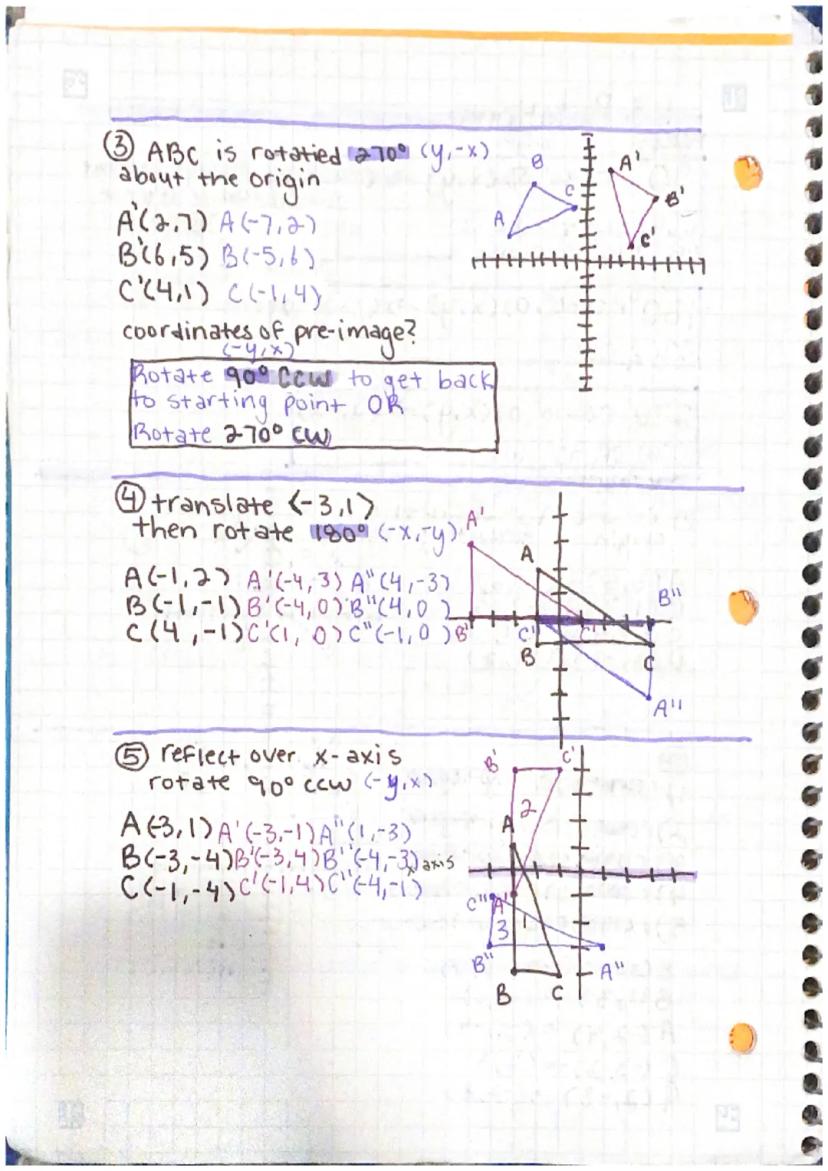 ③ ABC is rotatied 270° (y,-x)
about the origin
A'(2,7) A(-7,2)
B'(6,5) B(-5,6)
C'(4,1) C(-1,4)
coordinates of pre-image?
(-y,x)
Rotate 90° CCW to get back
to starting point OR
Rotate 270° CW
A
B
C
A'
B'
C'
④ translate <-3,1>
then rotate 180° (-x,-y)
A(-1,2) A'(-4,3) A''(4,-3)
B(-1,-1) B'(-4,0) B''(4,0)
C(4,-1) C'(1,0) C''(-1,0)
A'
A
B''
B'
C''
C'
B
C
A''
⑤ reflect over x-axis
rotate 90° ccw (-y,x)
A(-3,1) A'(-3,-1) A''(1,-3)
B(-3,-4) B'(-3,4) B''(-4,-3)
C(-1,-4) C'(-1,4) C''(-4,-1)
B'
C'
2
A
x axis
C''
A'
3
1
B''
A''
B
C